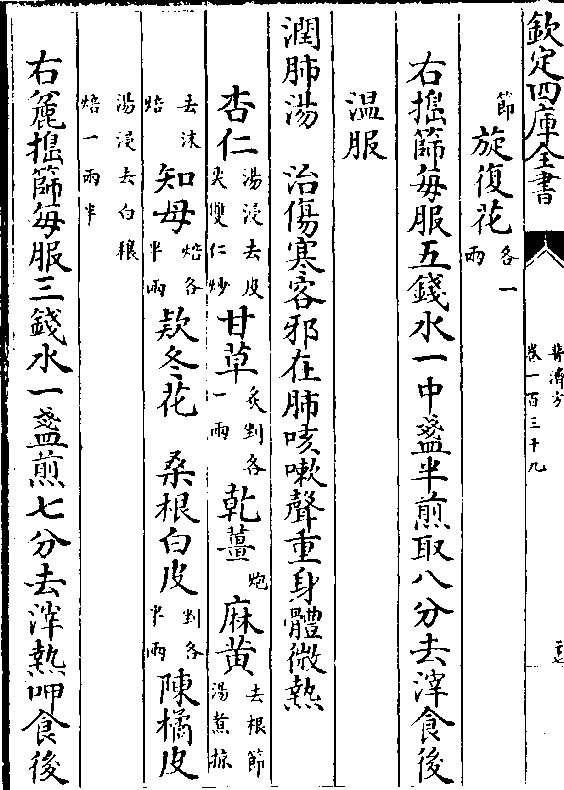 欽定四庫全書
普濟方
卷一百三十九
節旋復花各一兩
右搗篩每服五錢水一中盞半煎取八分去滓食後
温服
潤肺湯　治傷寒客邪在肺咳嗽聲重身體微熱
杏仁湯浸去皮尖雙仁炒　甘草炙剉各一兩　乾薑炮　麻黄去根節湯煮掠
去沫焙　知母焙各半兩　欵冬花　桑根白皮剉各半兩　陳橘皮
湯浸去白穰焙一兩半
右麄搗篩每服三錢水一盞煎七分去滓熱呷食後